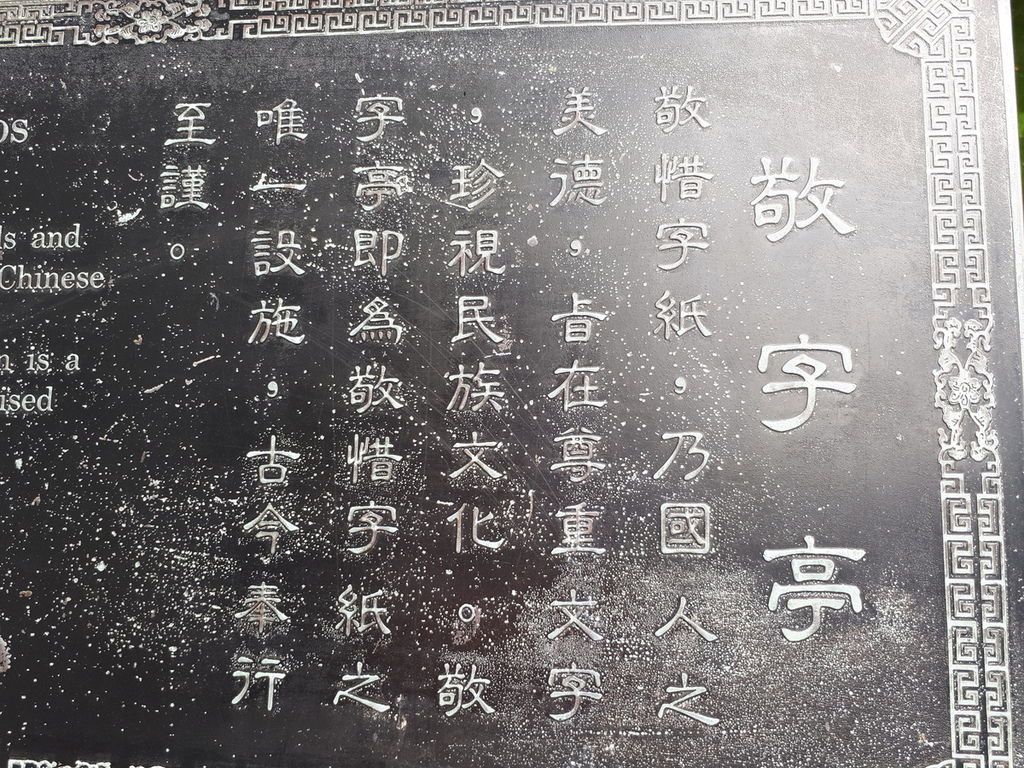 敬字亭
敬惜字紙，乃國人之
美德，旨在尊重文字
，珍視民族文化。敬
字亭即為敬惜字紙之
唯一設施，古今奉行
至謹。
and
Chinese
is a